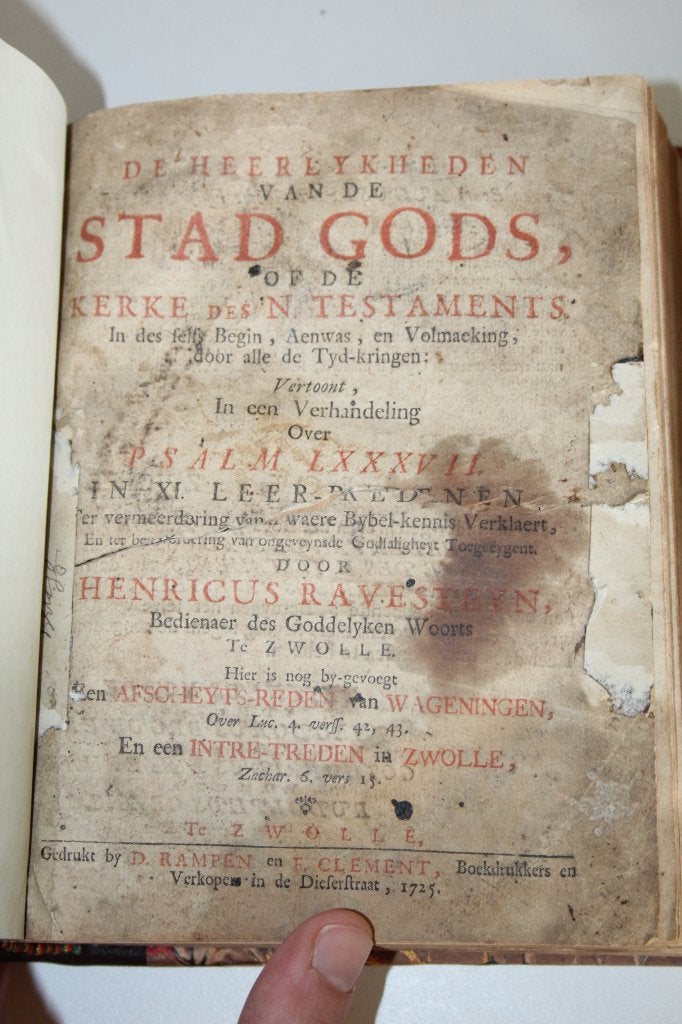 DE HEERLYKHEDEN
VAN DE
STAD GODS,
OF DE
KERKE DES N. TESTAMENTS.
In des selfs Begin, Aenwas, en Volmaeking,
door alle de Tyd-kringen:
Vertoont,
In een Verhandeling
Over
PSALM LXXXVII.
IN XI. LEER-REDENEN
Ter vermeerdering van waere Bybel-kennis Verklaert,
En ter bevoordering van ongeveynsde Godtsaligheyt Toegeëygent.
DOOR
HENRICUS RAVESTEYN,
Bedienaer des Goddelyken Woorts
Te ZWOLLE.
Hier is nog by-gevoegt
Een AFSCHEYTS-REDEN van WAGENINGEN,
Over Luc. 4. verss. 42, 43.
En een INTRE-TREDEN in ZWOLLE,
Zachar. 6. vers 15.
Te ZWOLLE,
Gedrukt by D. RAMPEN en F. CLEMENT, Boekdrukkers en
Verkopers in de Dieserstraat, 1725.